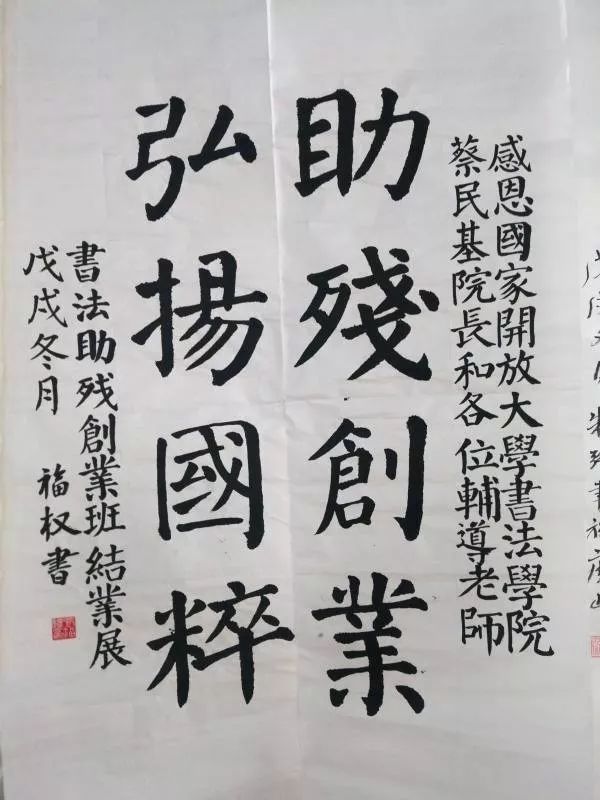 感恩國家開放大學書法學院
蔡民基院長和各位輔導老師
助殘創業
弘揚國粹
書法助残創業班結業展
戊戌冬月 福权書